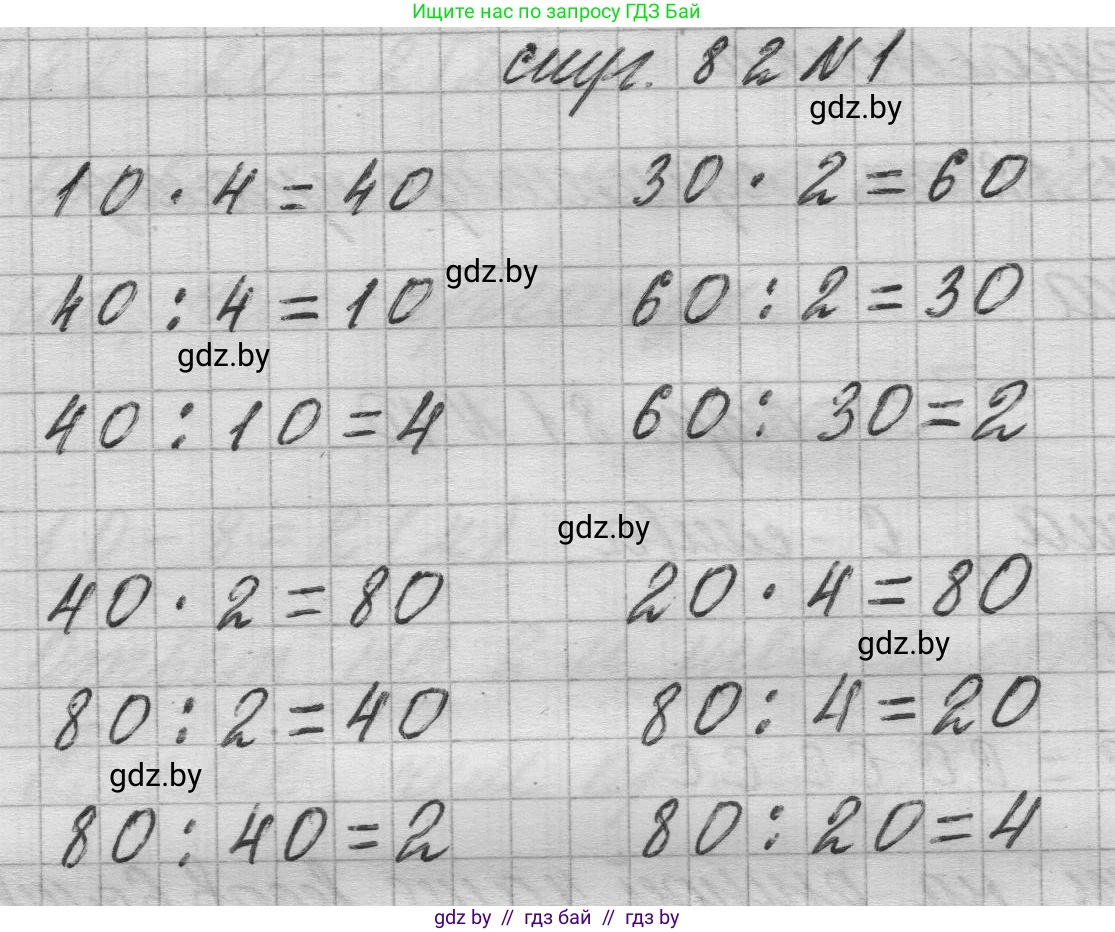 Ищите нас по запросу ГДЗ Бай
стр. 82 №1
gdz.by
10 · 4 = 40 30 · 2 = 60
gdz.by
40 : 4 = 10 60 : 2 = 30
gdz.by
40 : 10 = 4 60 : 30 = 2
gdz.by
40 · 2 = 80 20 · 4 = 80
gdz.by
80 : 2 = 40 80 : 4 = 20
gdz.by
80 : 40 = 2 80 : 20 = 4
gdz by // гдз бай // гдз by